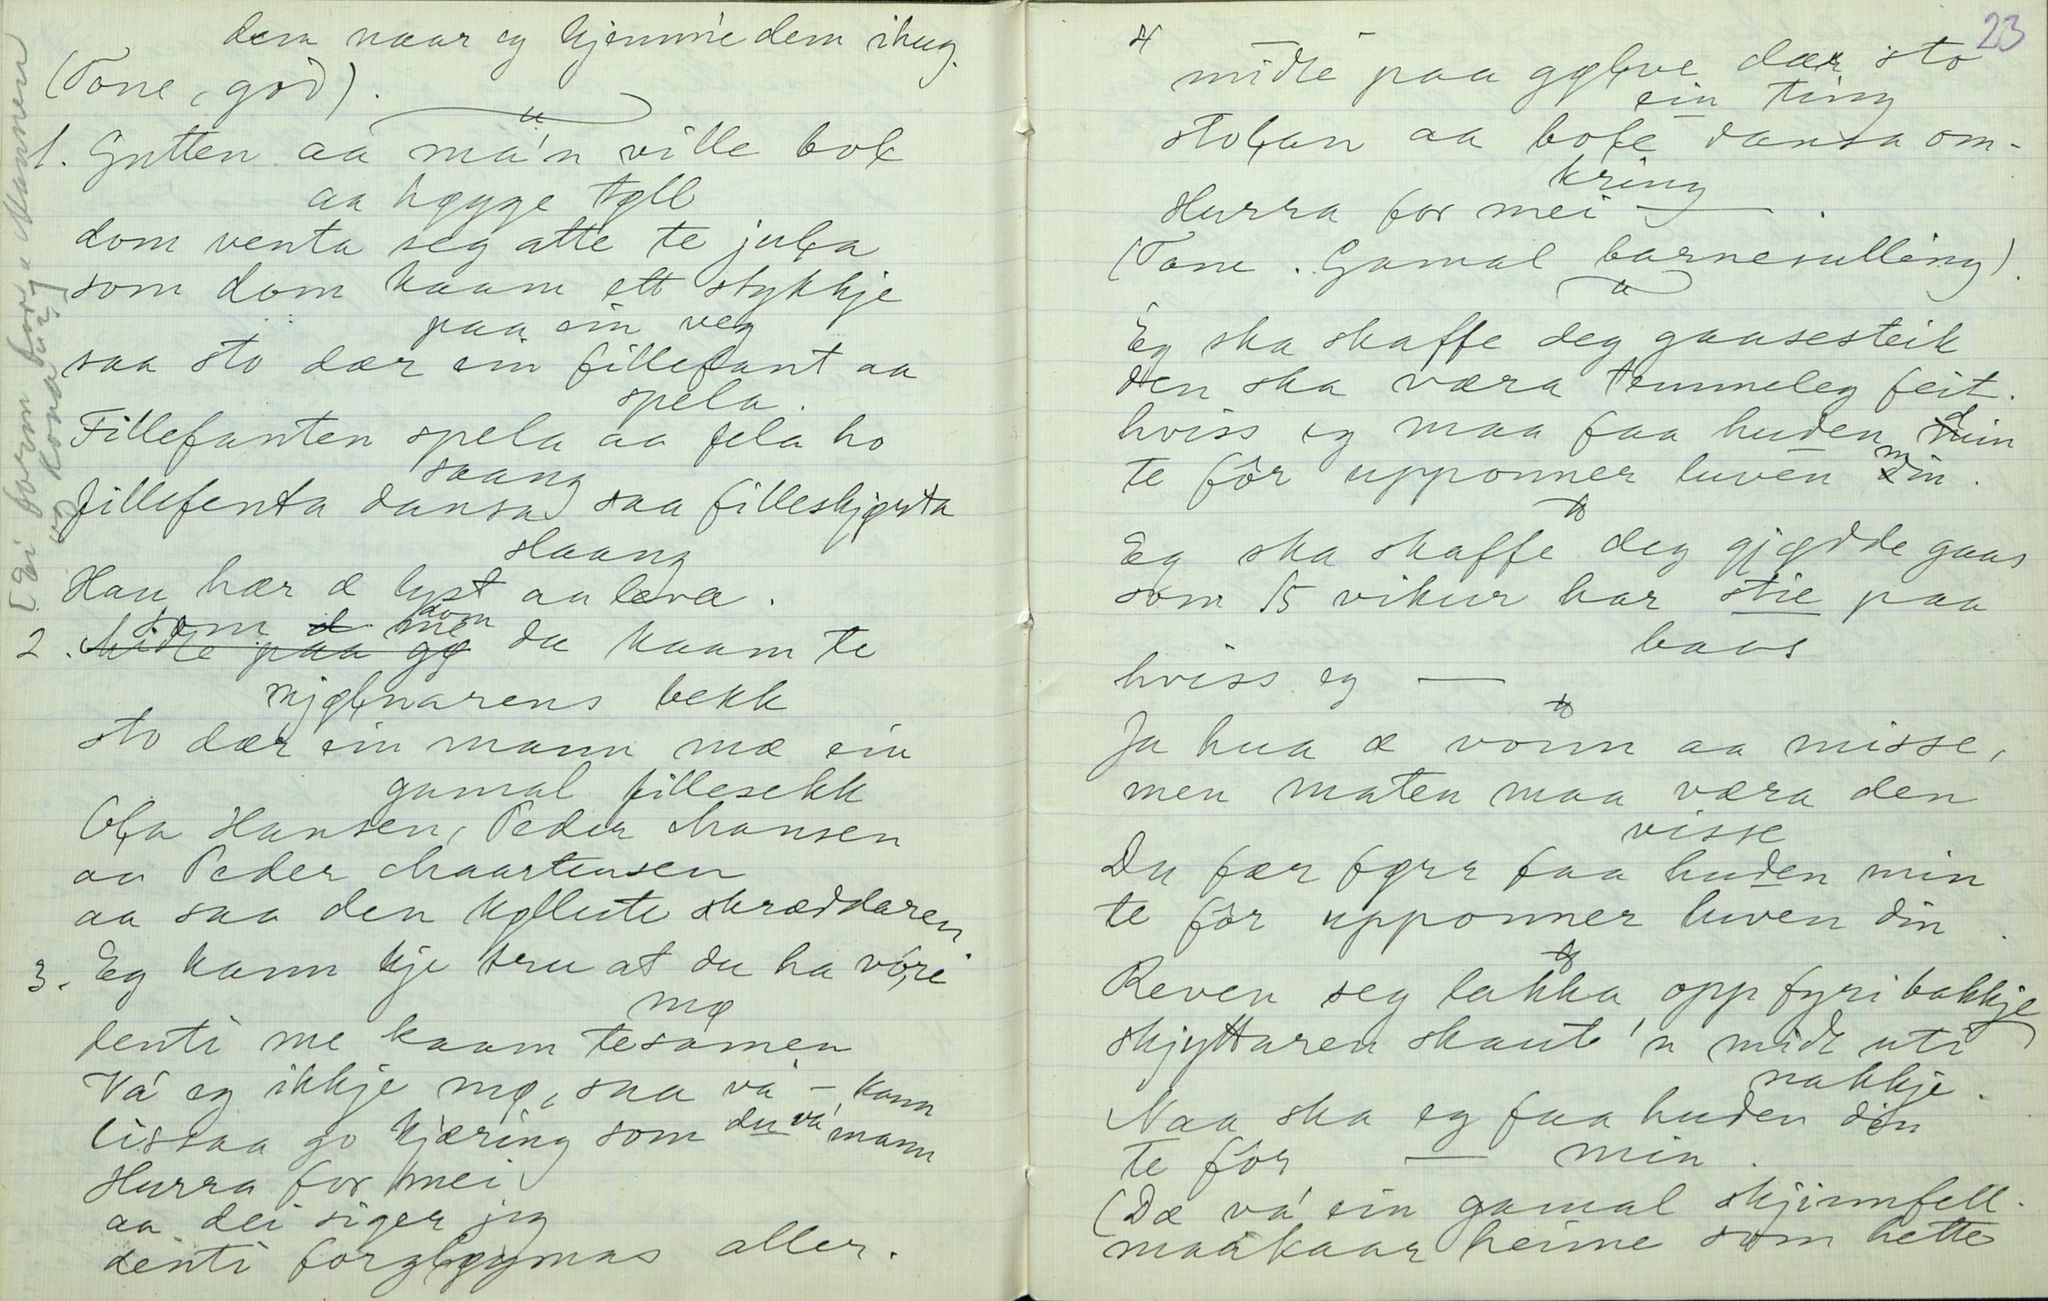 dem naar eg kjemme dem ihug.
(Tone, god).
1. Gutten aa má'n ville bok
aa høgge tøll
dom venta seg atte te jula
som dom kaam ett stykkje
paa ein veg
saa sto dær ein fillefant aa
spela.
Fillefanten spela aa fela ho
saang
fillefenta dansa saa filleskjørta
slaang
Han hær æ lyst aa leva.
2. som dom du kaam te
mjølnarens bekk
sto dær ein mann mæ ein
gamal fillesekk
Ola Hansen, Peder Hansen
aa Peder Maartensen
aa saa den kølleite skræddaren
3. Eg kann kje tru at du ha vöri
mø
denti me kaam tesamen
Vá eg ikkje mø, saa vá – kann
lissaa go kjæring som du vá mann
Hurra for mei
aa dei siger jeg
denti forgløymas aller.
[Ei form fra Mannen
og kona
4 23
midte paa gølve dær sto
ein ting
stolan aa bole dansa om-
kring
Hurra for mei —.
(Tone. Gamal barnesulling).
Eg ska skaffe deg gaasesteik
den ska væra temmeleg feit.
hviss eg maa faa huden din
te fôr upponner luven min.
Eg ska skaffe deg gjødde gaas
som 15 vikur har stie paa
baas
hviss eg —
Ja hua æ vonn aa misse,
men maten maa væra den
visse
Du fær førr faa huden min
te fôr upponner luven din.
Reven seg lakka opp fyri bakkje
skjyttaren skaut'n midt uti
nakkje.
Naa ska eg faa huden din
te fôr — min.
(Dæ vá ein gamal skjinnfell-
maakaar heime som hette